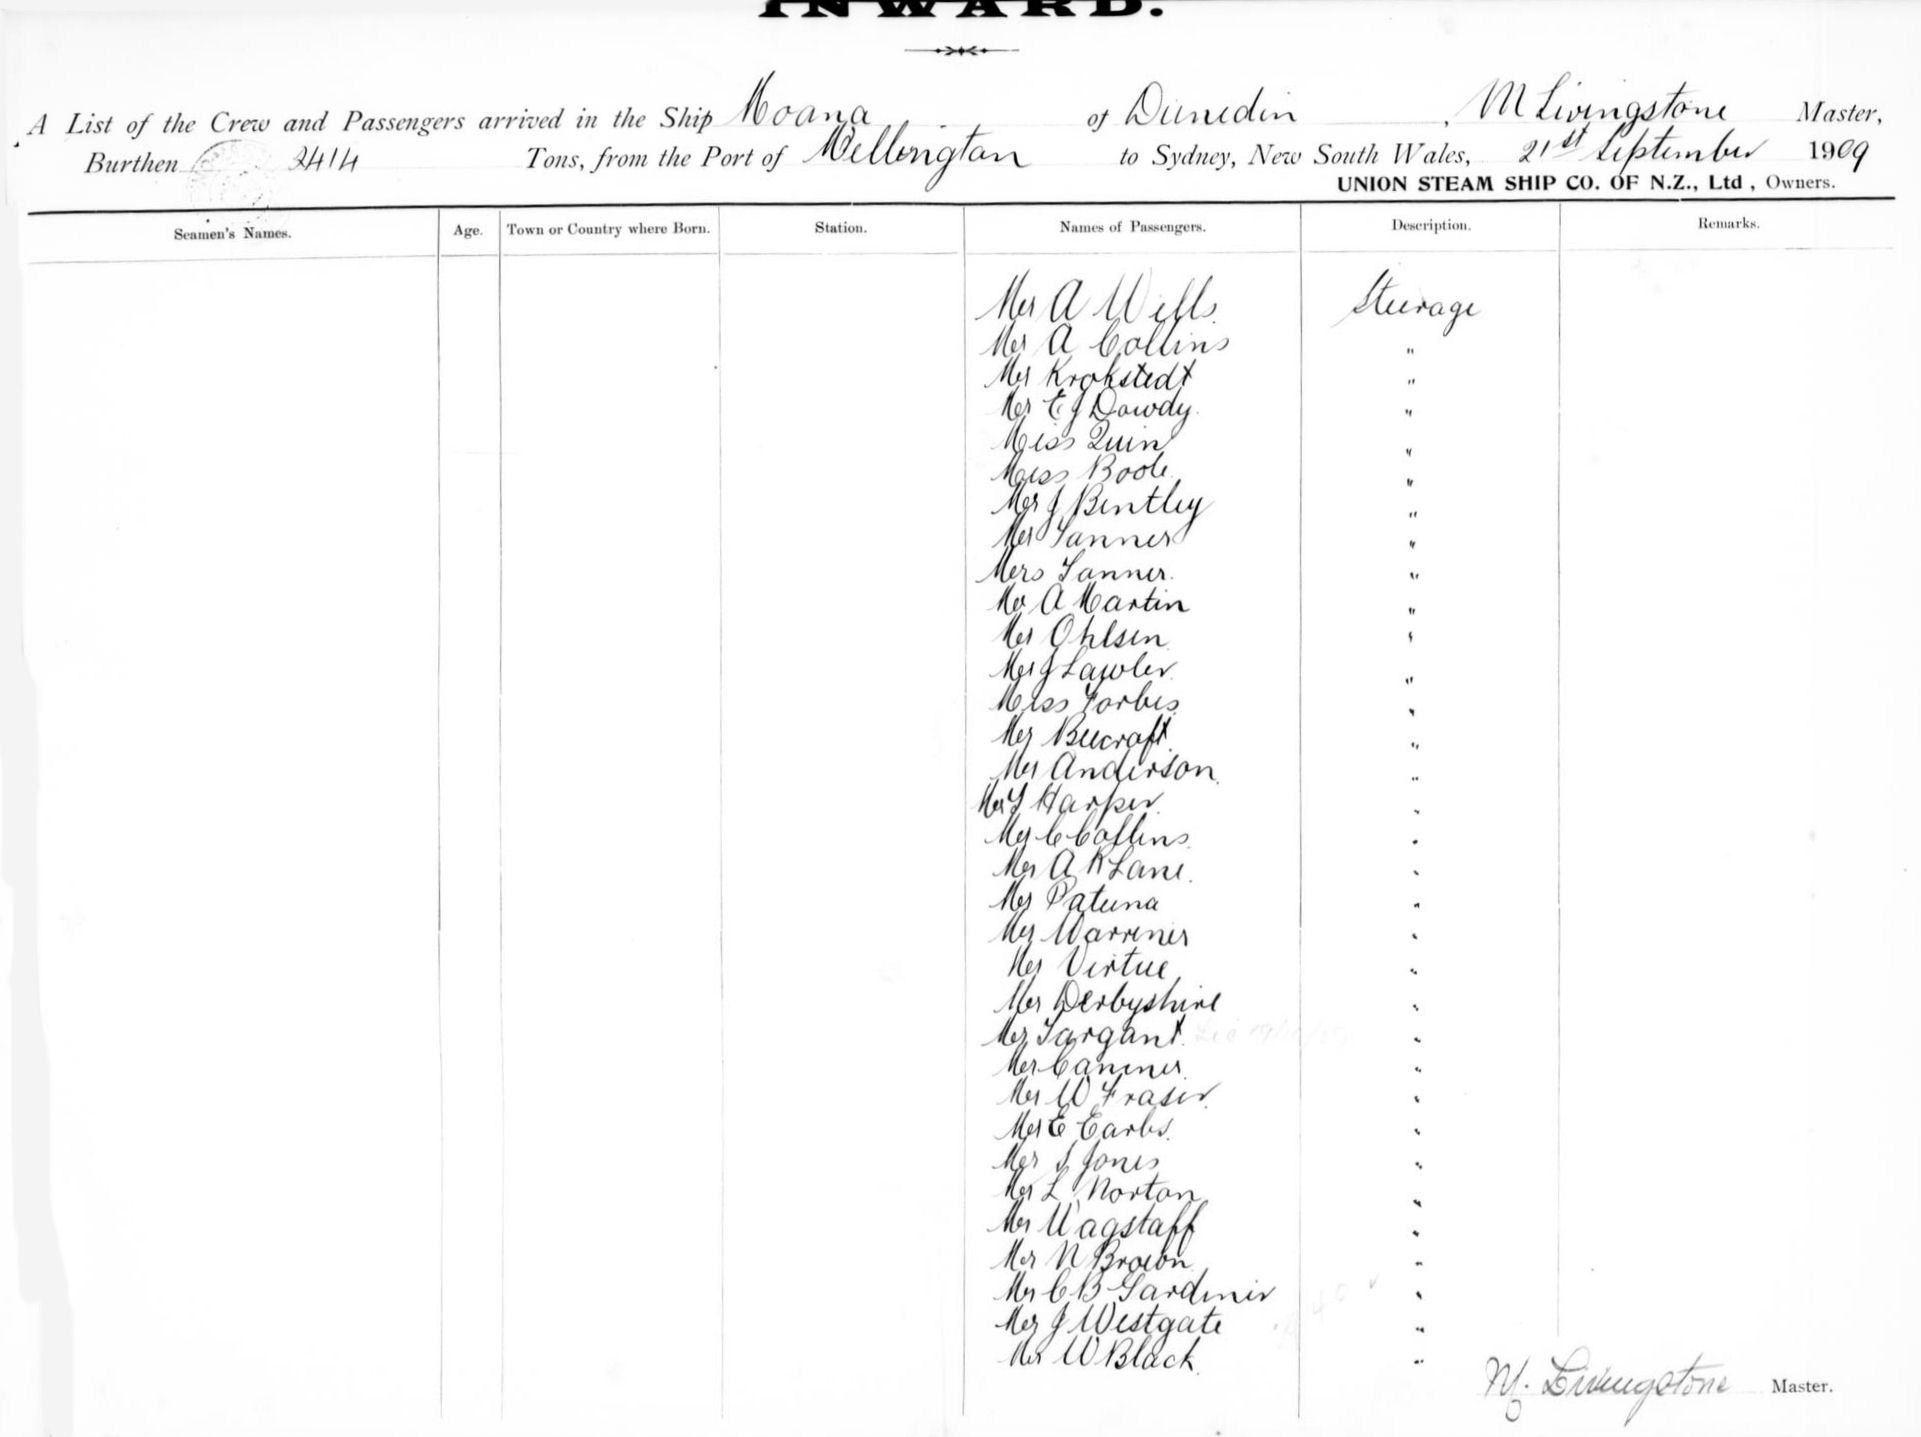 INWARD.
A List of the Crew and Passengers arrived in the Ship Moana of Dunedin, M Livingstone Master,
Burthen 2414 Tons, from the Port of Wellington to Sydney, New South Wales, 21st September 1909
UNION STEAM SHIP CO. OF N.Z., Ltd, Owners.
Seamen's Names. Age. Town or Country where Born. Station. Names of Passengers. Description. Remarks.
Mr A Wells Steerage
Mr A Collins "
Mr Krokstedt "
Mr E J Dowdy "
Miss Quin "
Miss Boole "
Mr J Bentley "
Mr Tanner "
Mrs Tanner "
Mr A Martin "
Mr Ohlsen "
Mr J Lawler "
Miss Forbes "
Mr Beecraft "
Mr Anderson "
Mr T Harper "
Mr C Collins "
Mr A R Lane "
Mr Patuna "
Mr Warriner "
Mr Virtue "
Mr Derbyshire "
Mr Targant "
Mr "
Mr W Fraser "
Mr E Earls "
Mr S Jones "
Mr L Norton "
Mr Wagstaff "
Mr N Brown "
Mr C B Gardiner "
Mr J Westgate "
Mr W Black "
M. Livingstone Master.